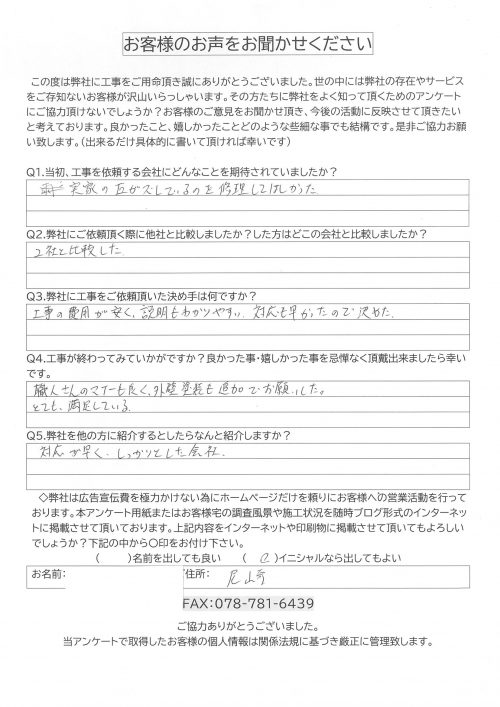 お客様のお声をお聞かせください
この度は弊社に工事をご用命頂き誠にありがとうございました。世の中には弊社の存在やサービス
をご存知ないお客様が沢山いらっしゃいます。その方たちに弊社をよく知って頂くためのアンケート
にご協力頂けないでしょうか？お客様のご意見をお聞かせ頂き、今後の活動に反映させて頂きたい
と考えております。良かったこと、嬉しかったことどのような些細な事でも結構です。是非ご協力お願
い致します。（出来るだけ具体的に書いて頂ければ幸いです）
Q1.当初、工事を依頼する会社にどんなことを期待されていましたか？
実家の瓦がズレているのを修理してほしかった
Q2.弊社にご依頼頂く際に他社と比較しましたか？した方はどこの会社と比較しましたか？
2社と比較した
Q3.弊社に工事をご依頼頂いた決め手は何ですか？
工事の費用が安く、説明もわかりやすい、対応も早かったので決めた。
Q4.工事が終わってみていかがですか？良かった事・嬉しかった事を忌憚なく頂戴出来ましたら幸い
です。
職人さんのマナーも良く、外壁塗装も追加でお願いした。
とても、満足している。
Q5.弊社を他の方に紹介するとしたらなんと紹介しますか？
対応が早く、しっかりとした会社。
◇弊社は広告宣伝費を極力かけない為にホームページだけを頼りにお客様への営業活動を行って
おります。本アンケート用紙またはお客様宅の調査風景や施工状況を随時ブログ形式のインターネッ
トに掲載させて頂いております。上記内容をインターネットや印刷物に掲載させて頂いてもよろしい
でしょうか？下記の中から〇印をお付け下さい。
（　　）名前を出しても良い　（　　）イニシャルなら出してもよい
お名前：　住所：
FAX：078-781-6439
ご協力ありがとうございました。
当アンケートで取得したお客様の個人情報は関係法規に基づき厳正に管理致します。